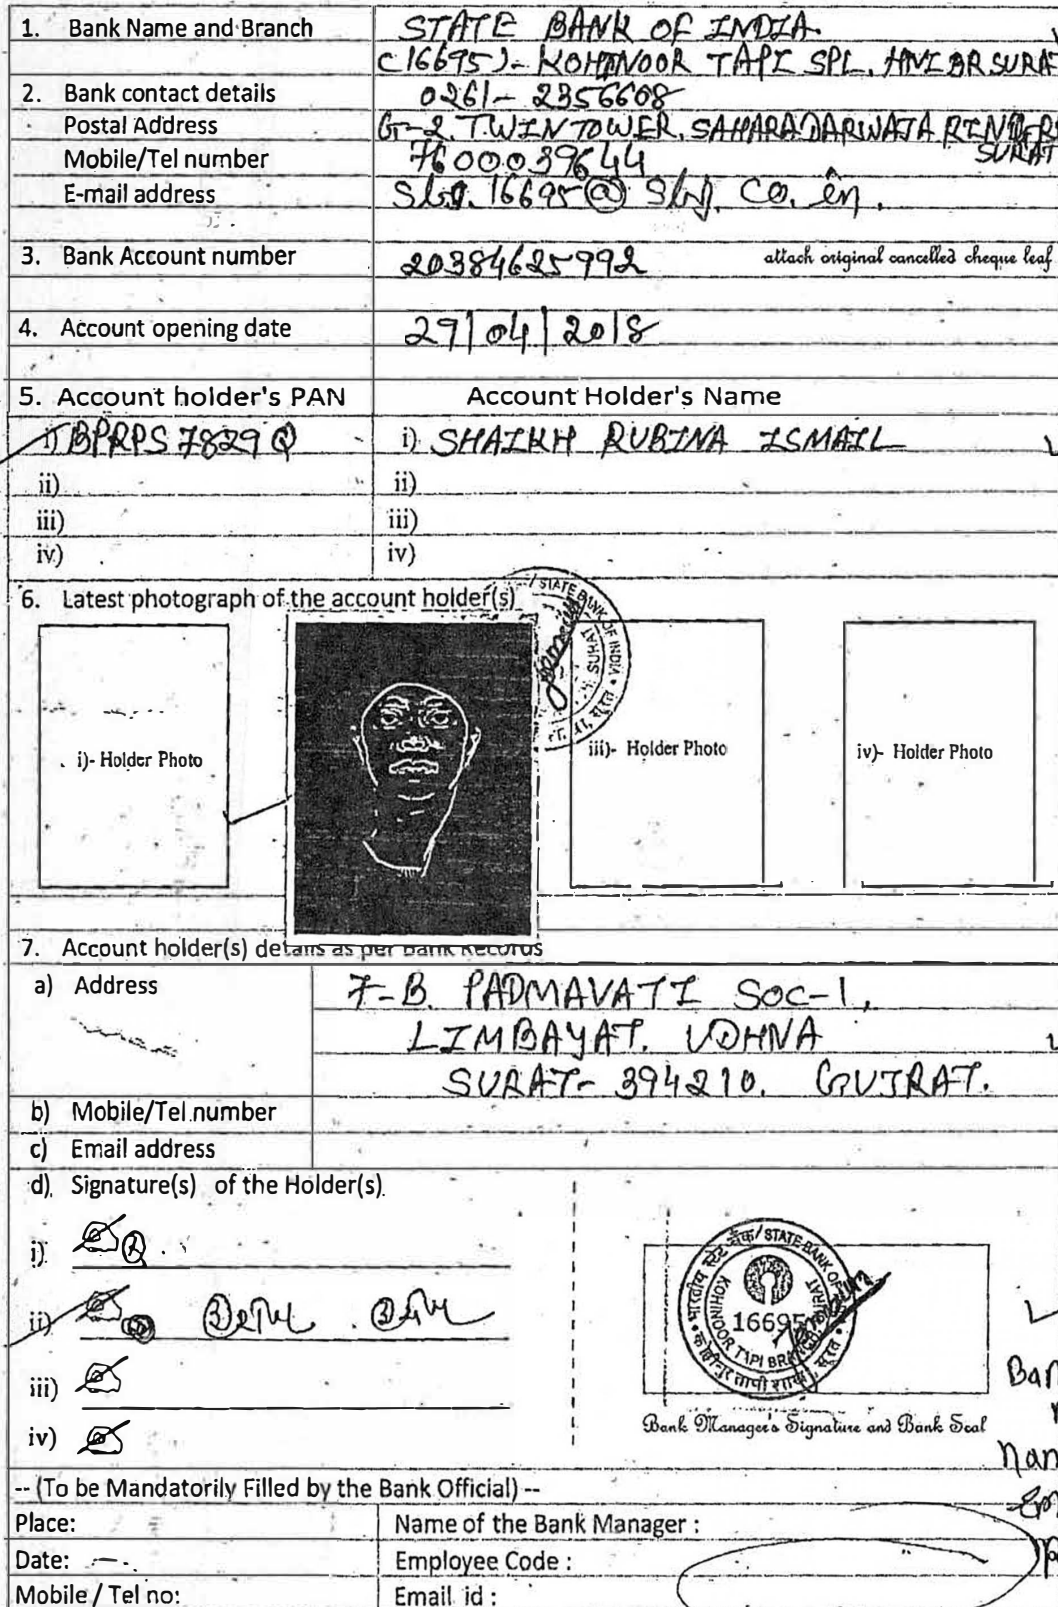 1. Bank Name and Branch STATE BANK OF INDIA.
(16695)- KOHINOOR TAPI SPL. HNI BR SURAT
2. Bank contact details 0261- 2356608
Postal Address G-2, TWIN TOWER, SAHARA DARWAJA RING R
SURAT
Mobile/Tel number 7600039644
E-mail address sbi.16695@sbi.co.in.
3. Bank Account number 20384625992 attach original cancelled cheque leaf
4. Account opening date 29/04/2018
5. Account holder's PAN Account Holder's Name
i) BPRPS7829Q i) SHAIKH RUBINA ISMAIL
ii) ii)
iii) iii)
iv) iv)
6. Latest photograph of the account holder(s)
STATE BANK OF INDIA
SURAT
i)- Holder Photo iii)- Holder Photo iv)- Holder Photo
7. Account holder(s) details as per Bank Records
a) Address 7-B. PADMAVATI SOC-1,
LIMBAYAT. UDHNA
SURAT- 394210. GUJRAT.
b) Mobile/Tel.number
c) Email address
d). Signature(s) of the Holder(s).
i)
ii)
iii)
iv)
भारतीय स्टेट बैंक/STATE BANK OF
KOHINOOR TAPI BRANCH
16695
कोहीनूर तापी शाखा, सूरत
Bank Manager's Signature and Bank Seal
Ban
nan
Em
-- (To be Mandatorily Filled by the Bank Official) --
Place: Name of the Bank Manager :
Date: Employee Code :
Mobile / Tel no: Email id :